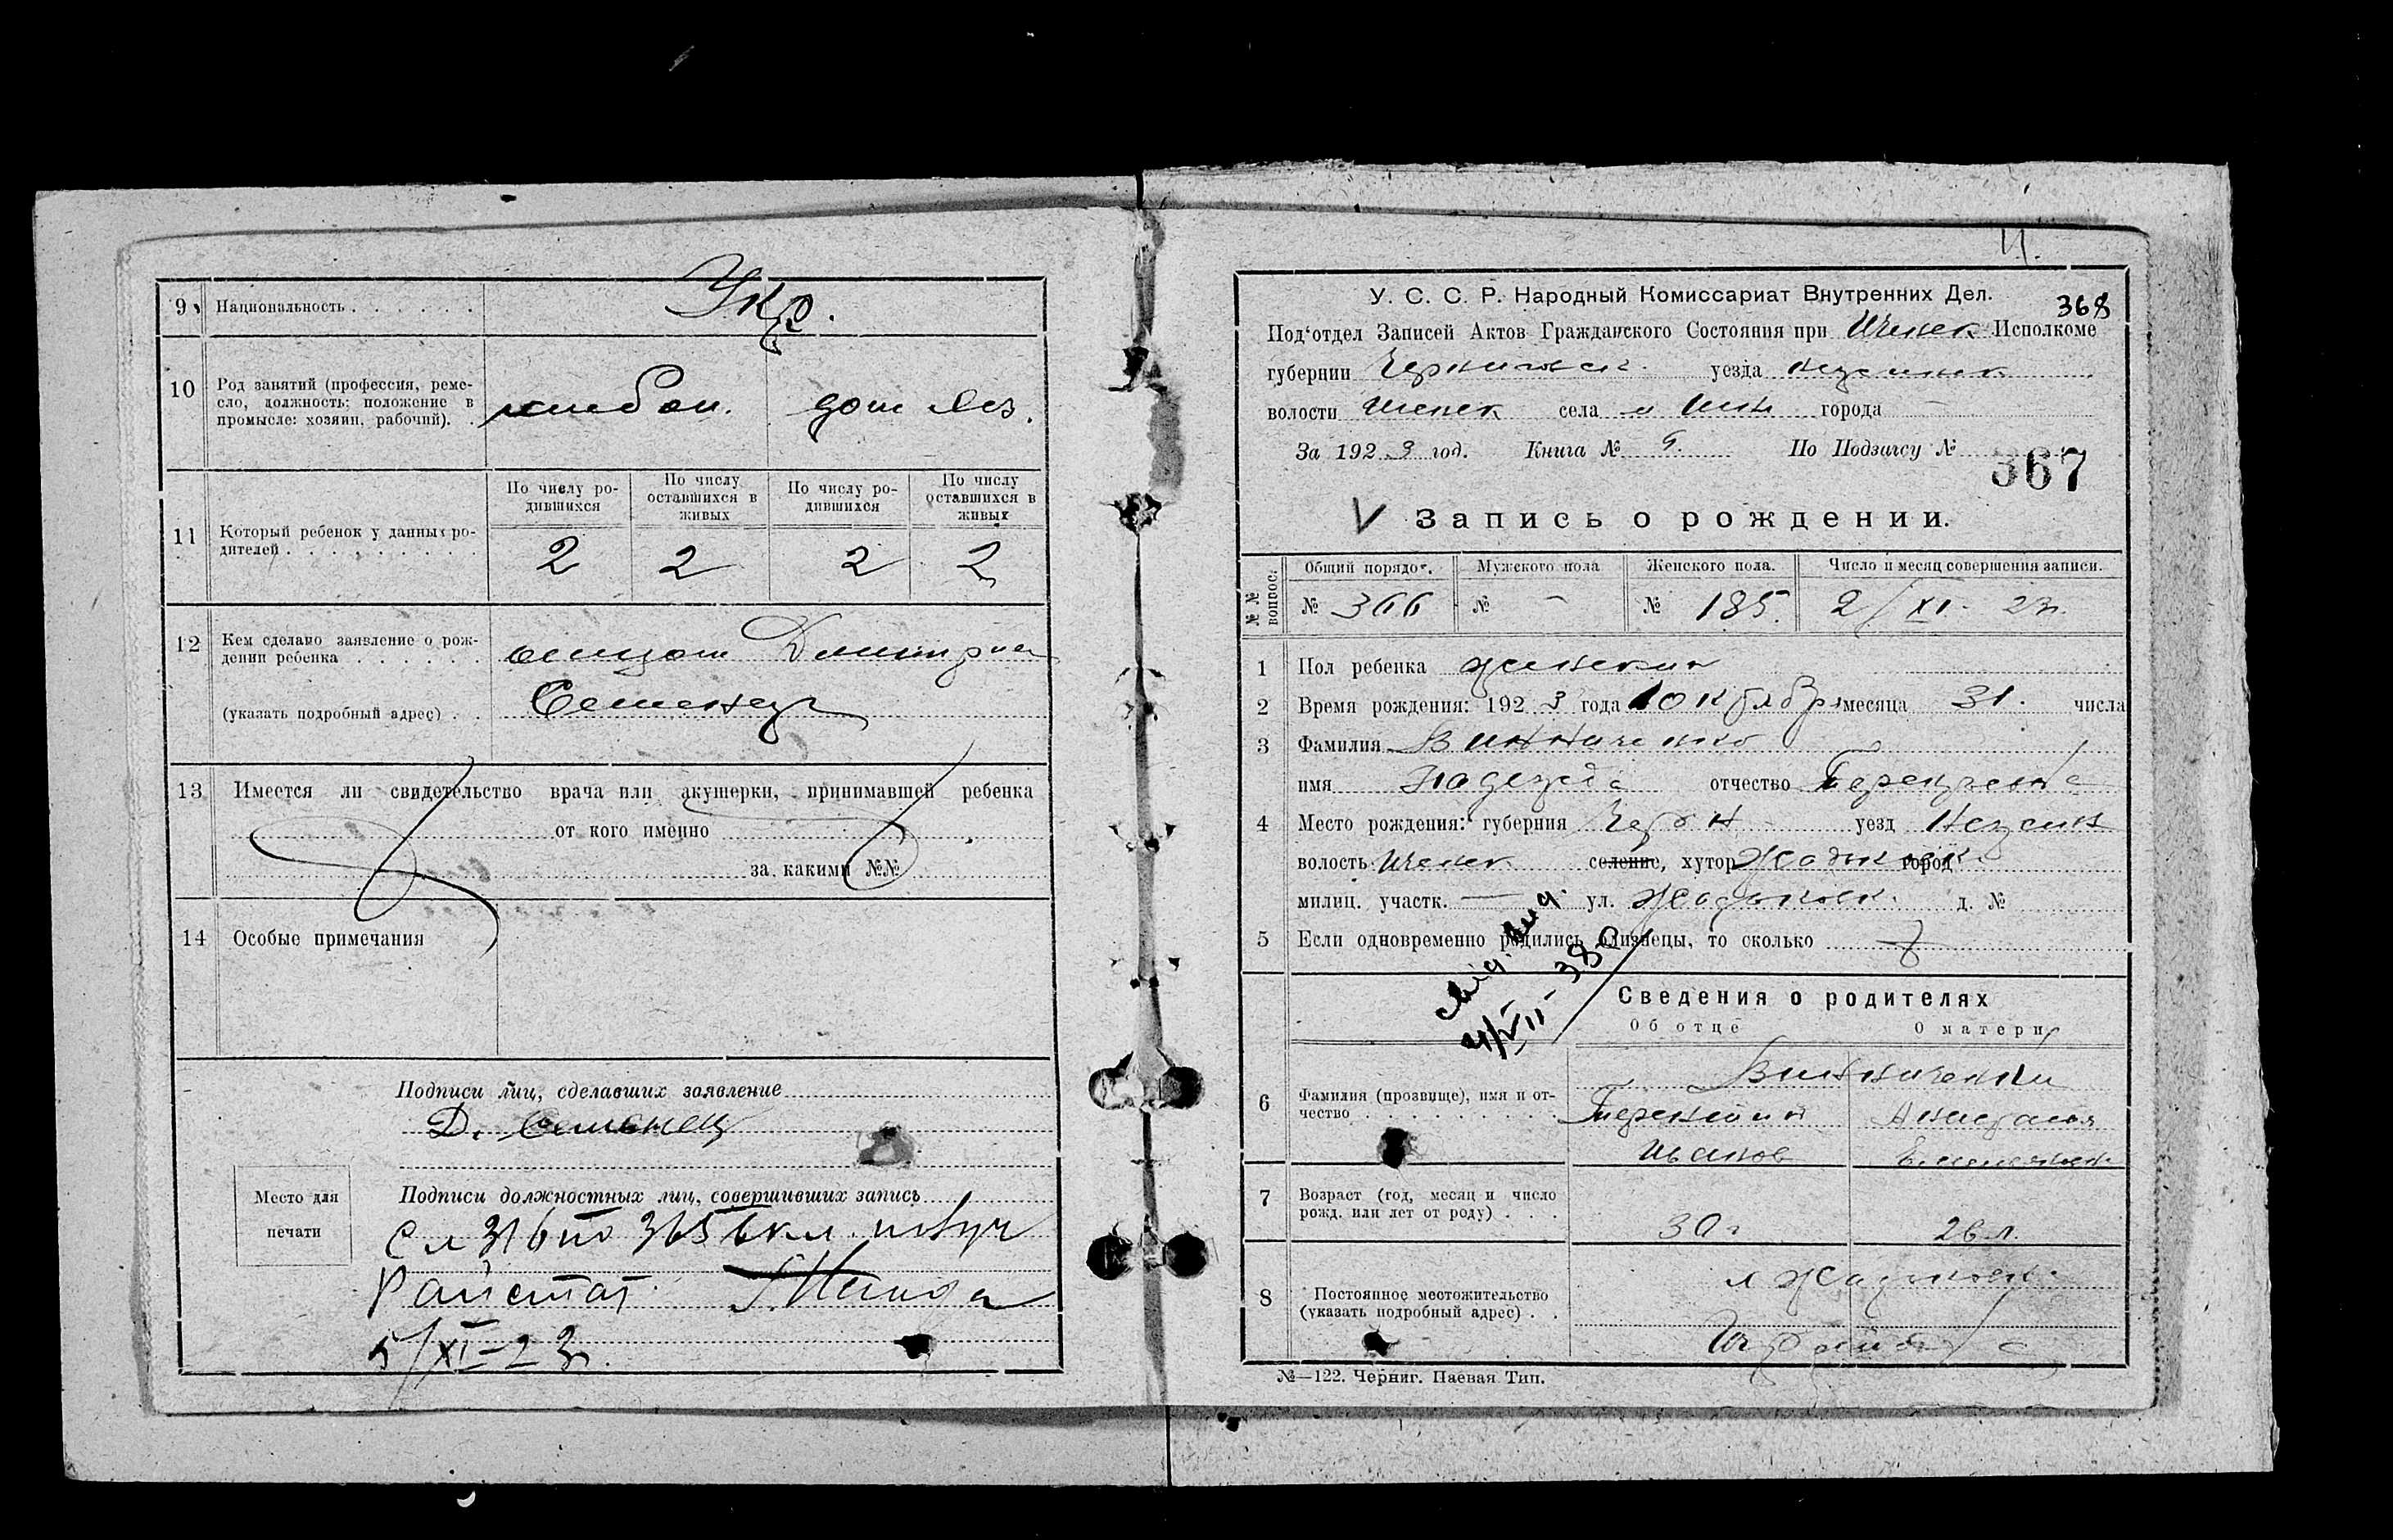 9 Национальность . . . . . . Укр.
10 Род занятий (профессия, реме-
сло, должность: положение в
промысле: хозяин, рабочий). . хлебоп. дом хоз.
11 Который ребенок у данных ро-
дителей . . . . . . . . .
По числу ро-
дившихся
По числу
оставшихся в
живых
По числу ро-
дившихся
По числу
оставшихся в
живых
2 2 2 2
12 Кем сделано заявление о рож-
дении ребенка . . . . . . Дмитрий
(указать подробный адрес) . . Семенец
13 Имеется ли свидетельство врача или акушерки, принимавшей ребенка
от кого именно
за какими №№
14 Особые примечания
Подписи лиц, сделавших заявление
Д. Семенец
Место для
печати
Подписи должностных лиц, совершивших запись
с № 316 по 365 вкл.
Райстат.
5/XI-23
368
У. С. С. Р. Народный Комиссариат Внутренних Дел.
Под‘отдел Записей Актов Гражданского Состояния при Иченск Исполкоме
губернии Черниговск. уезда Нежинск
волости Иченск села м Ичн города
За 1923 год. Книга № По Подзагсу №
367
V Запись о рождении.
№№ вопрос.
Общий порядок. Мужского пола Женского пола. Число и месяц совершения записи.
№ 366 № – № 185. 2/XI- 23.
1 Пол ребенка женский
2 Время рождения: 1923 года Октября месяца 31. числа
3 Фамилия Винниченко
имя Надежда отчество Терентьевна
4 Место рождения: губерния Черн уезд Нежин
волость Иченск. селение, хутор Жадьковк. город
милиц. участк. — ул. Жадьковк. д. №
5 Если одновременно родились близнецы, то сколько
Сведения о родителях
Об отце О матери
6 Фамилия (прозвище), имя и от-
чество . . . . . . . . .
Винниченки
Терентий Анастасия
Иванов Емельянов.
7 Возраст (год, месяц и число
рожд. или лет от роду) . . .
30 г 26 л.
8 Постоянное местожительство
(указать подробный адрес) . .
х Жадьковк.
№—122. Черниг. Паевая Тип.